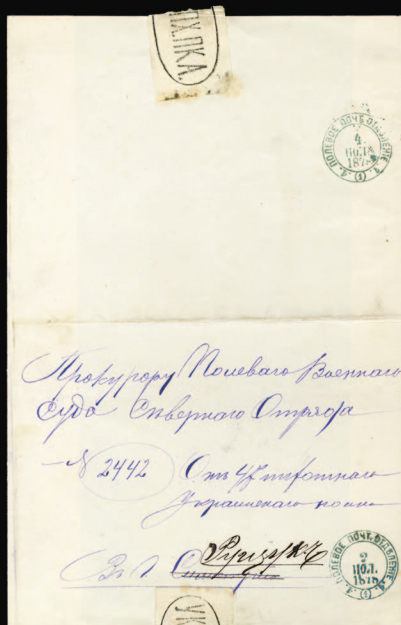 ПОЛЕВОЕ ПОЧТ. ОТДѢЛЕНІЕ
4
ІЮЛЯ
1878
Прокурору Полеваго Военнаго
Суда Сѣвернаго Отряда
№ 2442 Отъ 47 пѣхотнаго
Украинскаго полка
Въ г. Рущукъ
ПОЛЕВОЕ ПОЧТ. ОТДѢЛЕНІЕ
2
ІЮЛ.
1878